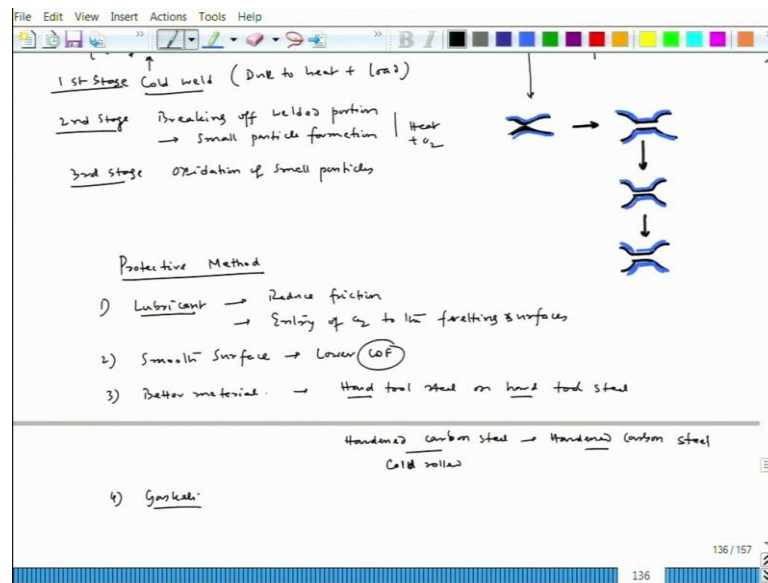 File Edit View Insert Actions Tools Help
1st Stage Cold weld (Due to heat + load)
2nd Stage Breaking off welded portion
→ Small particle formation | Heat + O2
3rd Stage Oxidation of small particles
Protective Method
1) Lubricant → Reduce friction
→ Entry of O2 to the fretting surfaces
2) Smooth Surface → Lower COF
3) Better material. → Hard tool steel on hard tool steel
Hardened carbon steel → Hardened carbon steel
Cold rolled
4) Gasket.
136 / 157
136